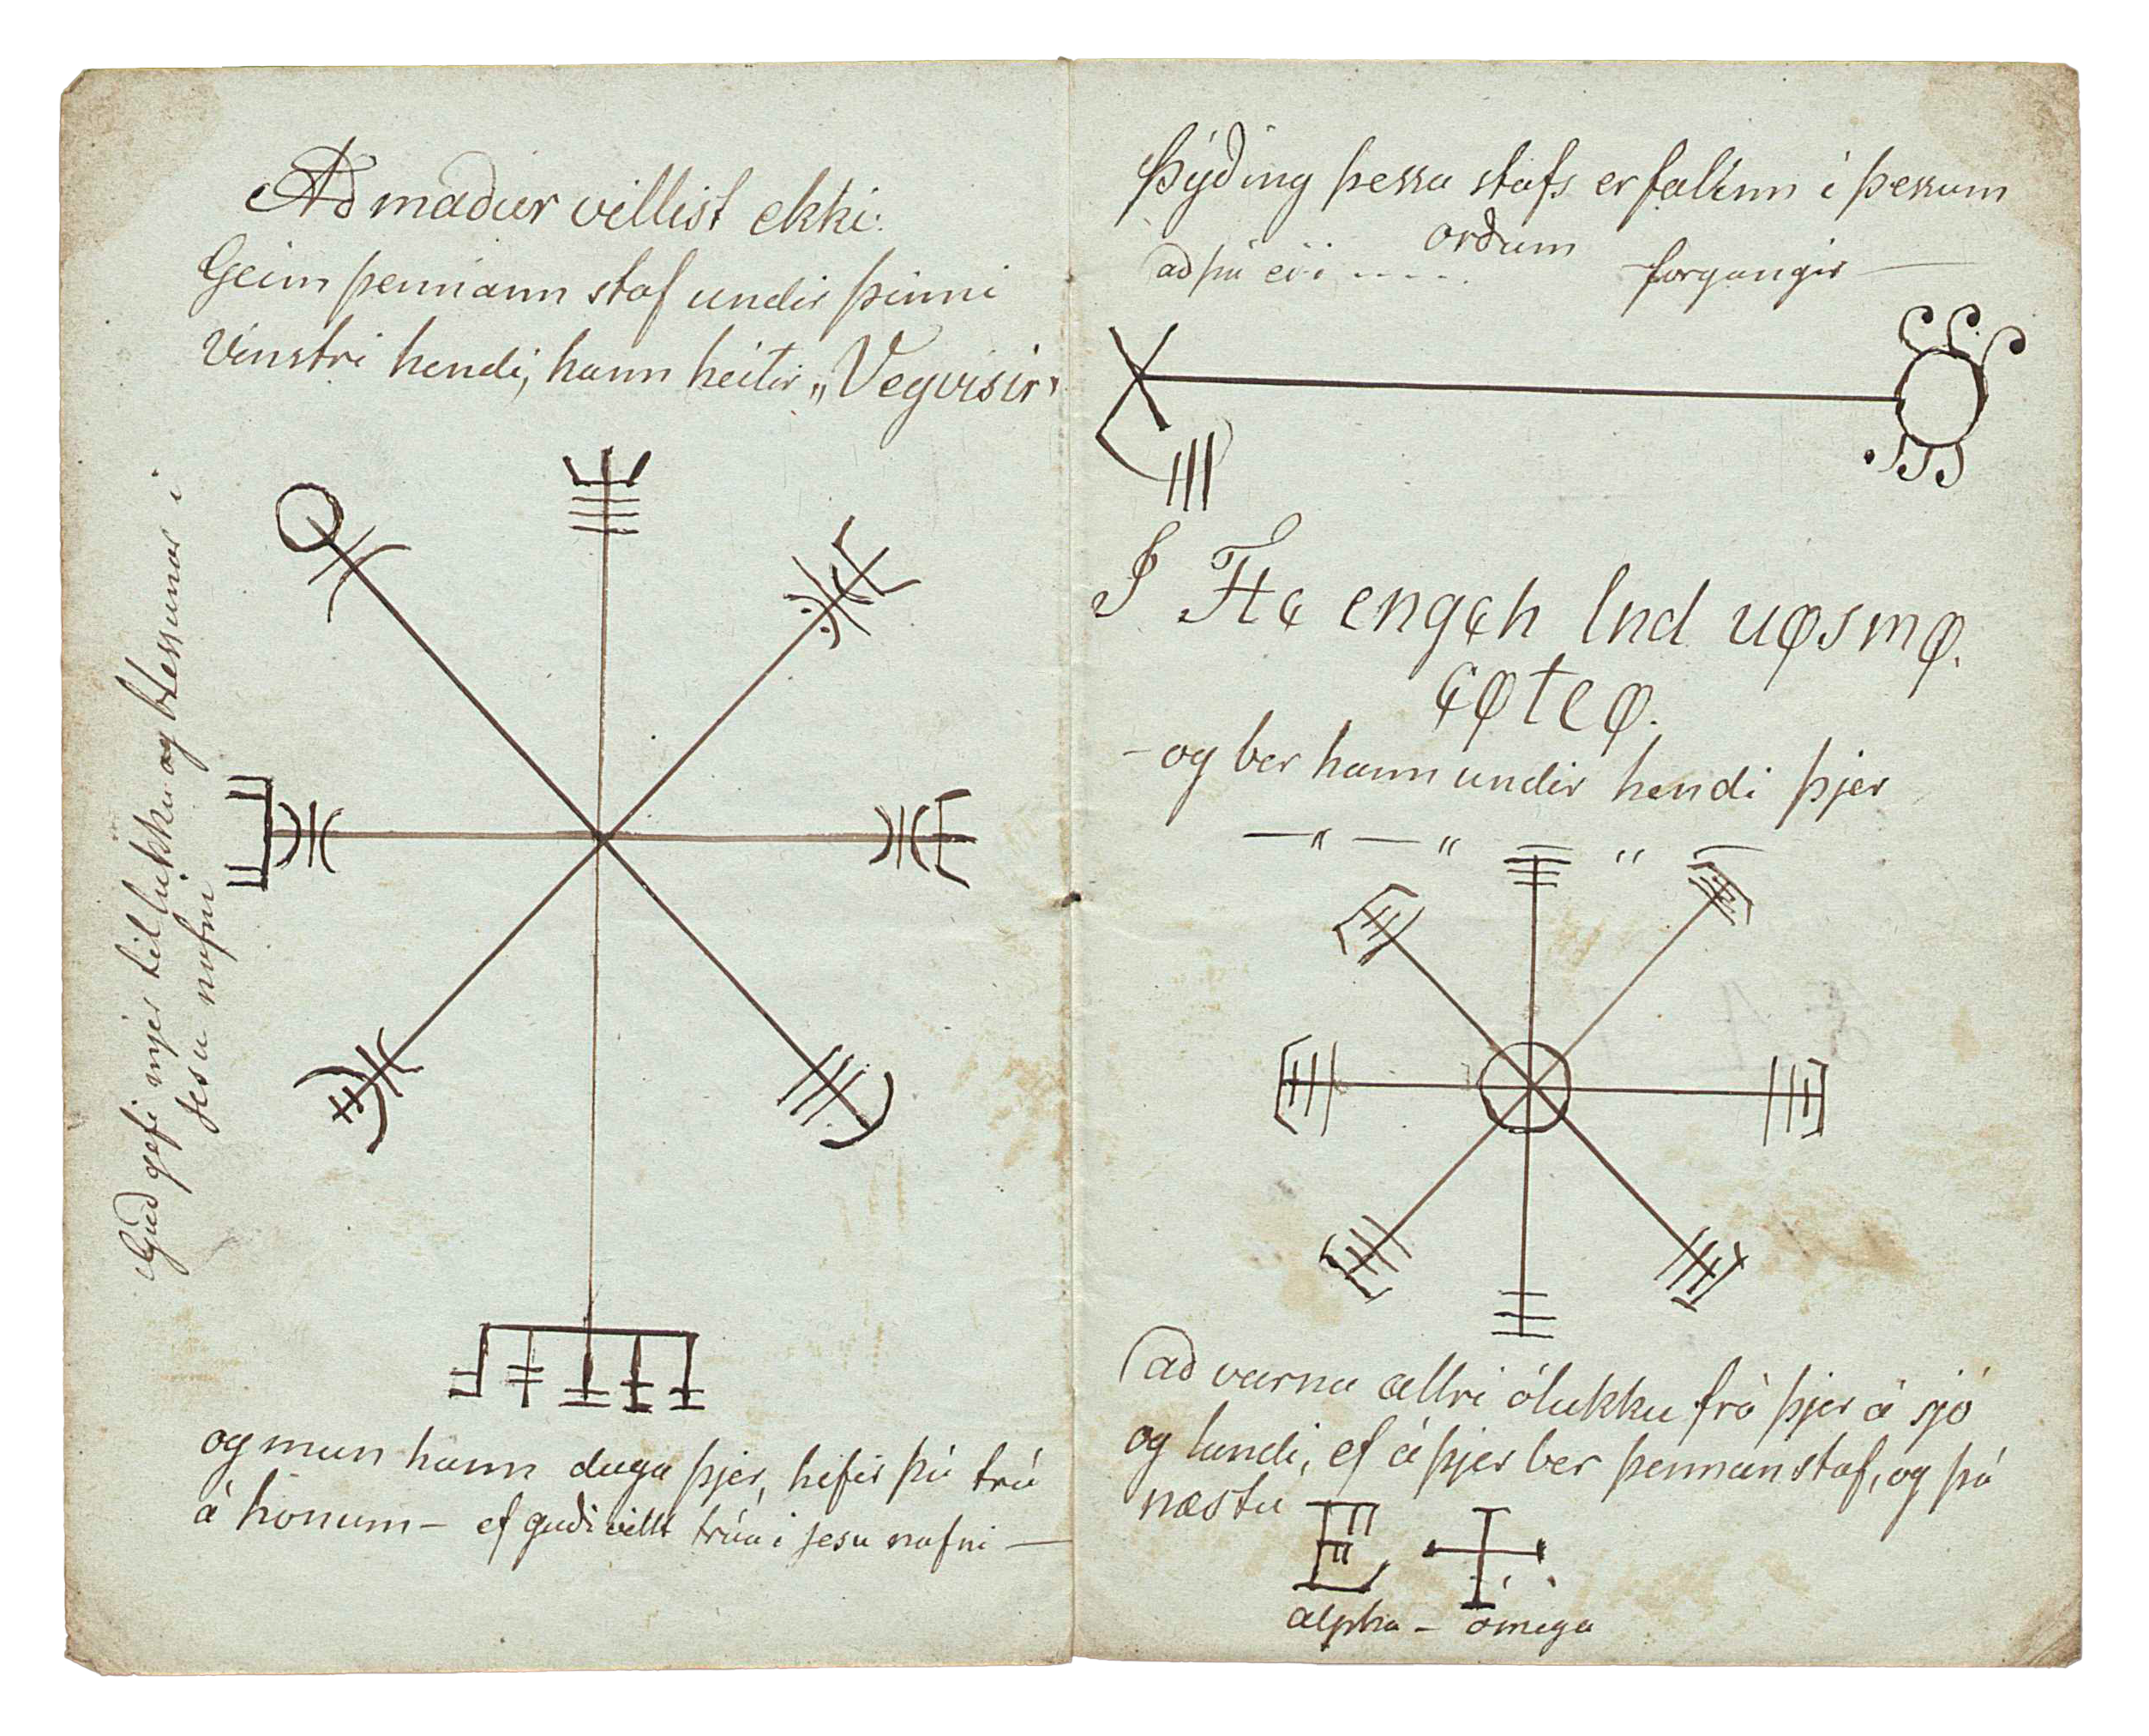 Að maður villist ekki:
Geim þennann staf undir þinni
vinstri hendi, hann heitir „Vegvisir"
Guð gefi mjer til lukku og blessunar i
Jesu nafni
og mun hann duga þjer, hefir þú trú
á honum – ef guði villt trúa i Jesu nafni —
Þýðing þessa stafs er falinn i þessum
orðum
að þú ei i - - - - . forgangir —
– og ber hann undir hendi þjer
að varna allri ólukku frá þjer á sjó
og landi, ef á þjer ber þennan staf, og þá
næstu
alpha – ómega